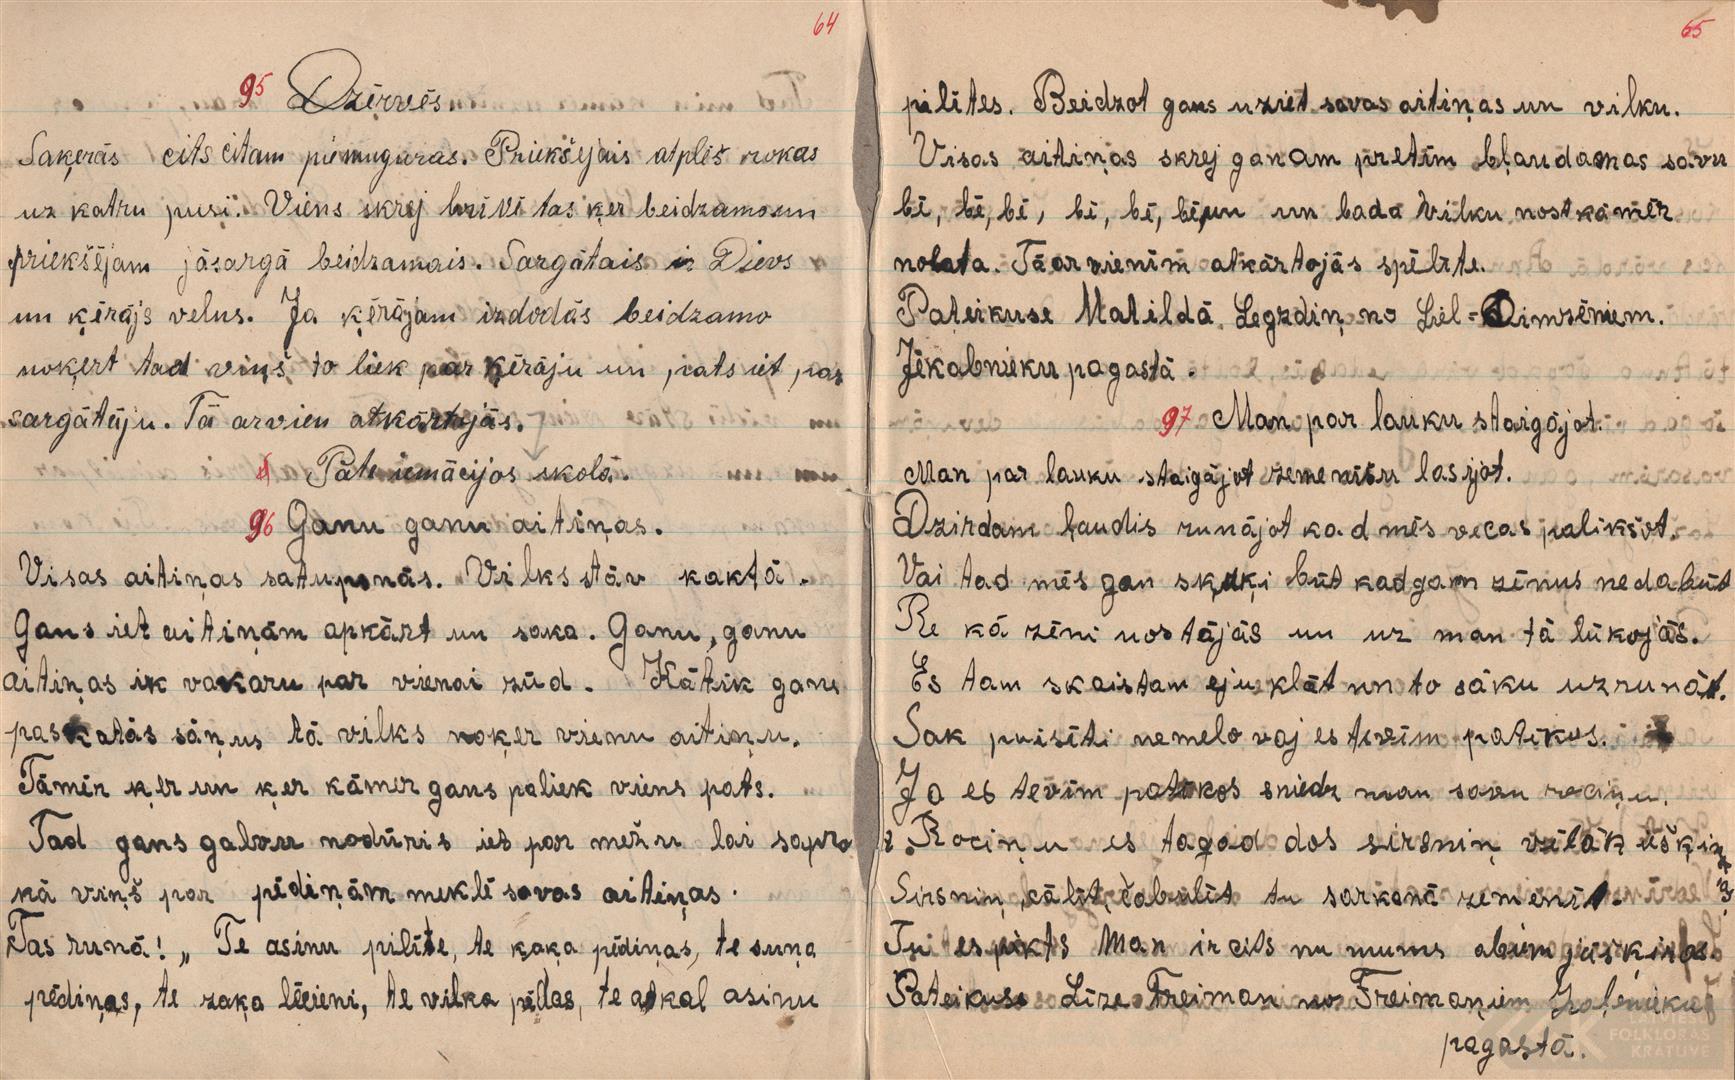 64
95 Dzērvēs.
Sakeŗās cits citam piemuguras. Priekšējais atplēš rokas
uz katru pusi. Viens skrej brīvi tas ķer beidzamo un
priekšējam jāsargā beidzamais. Sargātais ir Dievs
un ķērājs velns. Ja ķērājam izdodās beidzamo
noķert tad viņš to liek par ķērāju un pats iet par
sargātāju. Tā arvien atkārtojās.
Pate iemācijos skolā.
96 Ganu ganu aitiņas.
Visas aitiņas satupsnās. Vilks stāv kaktā.
Gans iet aitiņām apkārt un saka. Ganu, ganu
aitiņas ik vakaru par vienai zūd. Kātik gans
paskatās sāņus tā vilks noķer vienu aitiņu.
Tāmēr ķer un ķer kāmēr gans paliek viens pats.
Tad gans galvu nodūris iet par mežu lai sapro
kā viņš par pēdiņām meklē savas aitiņas.
Tas runā! „ Te asinu pilīte, te kaķa pēdiņas, te suņa
pēdiņas, te zaķa lēcieni, te vilka pēdas, te atkal asinu
65
pilītes. Beidzot gans uziet savas aitiņas un vilku.
Visas aitiņas skrej ganam pretīm bļaudamas savu
bē, bē, bē, bē, bē, bē, un un bada vilku nost kāmēr
nobada. Tā arvienim atkārtojās spēlīte.
Pateikuse Matildā Legzdiņ no Liel-Dimzēniem.
Jēkabnieku pagastā.
97 Man par lauku staigājot.
Man par lauku staigājot zemenītsu lasījot.
Dzirdam ļaudis runājot kad mēs vecas palikšot.
Vai tad mēs gan skuķi būt kad gan zēnus nedabūt
Re kā zēni nostājās un uz man tā lūkojās.
Es tam skaistam eju klāt un to sāku uzrunāt.
Sak puisīti nemelo vaj es tevīm patikos.
Ja es tevīm patikos sniedz man savu rociņu.
Rociņu es tagad dos sirsniņ vēlāk
Sirsniņ, zālīt, čabulīt tu sarkanā zemenīt.
Tu es pikts Man ir cits nu mums abiem jāšķiŗas.
Pateikuse Līze Freiman no Freimaņiem Zaļenieku
pagastā.
LATVIEŠU
FOLKLORAS
KRĀTUVE